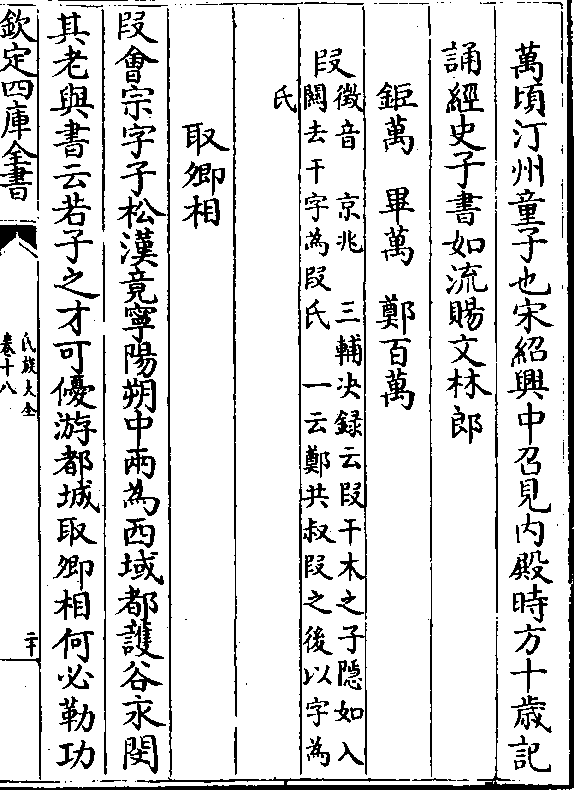 萬頃汀州童子也宋紹興中召見内殿時方十歲記
誦經史子書如流賜文林郎
鉅萬 畢萬 鄭百萬
段
徵音 京兆 三輔决録云段干木之子隱如入
關去干字為段氏 一云鄭共叔段之後以字為
氏
取卿相
段會宗字子松漢竟寧陽朔中兩為西域都護谷永閔
其老與書云若子之才可優游都城取卿相何必勒功
欽定四庫全書
氏族大全
卷十八
二十